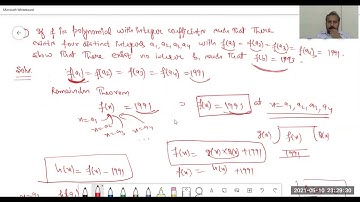 Microsoft Whiteboard
If f is polynomial with integer coefficients such that there
exists four distinct integers a₁, a₂, a₃, a₄ with f(a₁) = f(a₂) = f(a₃) = f(a₄) = 1991.
show that there exist no integer b, such that f(b) = 1993.
Soln:
f(a₁) = f(a₂) = f(a₃) = f(a₄) = 1991
Remainder Theorem
f(x) = 1991 ⇒ f(x) = 1991 at x = a₁, a₂, a₃, a₄
x=a₁ x=a₂ x=a₃ x=a₄
g(x) ) f(x) ( Q(x)
1991
f(x) = g(x) × Q(x) + 1991
h(x) = f(x) - 1991
f(x) = h(x) + 1991
2021-05-10 23:29:30